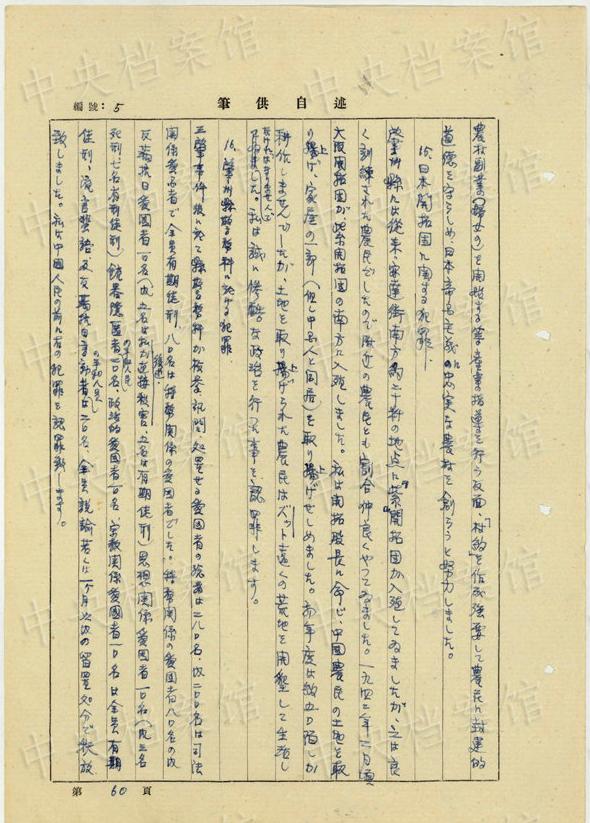 筆供自述
編號:5
農村副業(婦女の)を開拓する等産業の指導を行う反面、「村約」を作成強要して農民に封建的
道徳を守らしめ、日本帝国主義に忠実な農村を創ろうと努力しました。
15、日本開拓団に関する犯罪.
肇州縣には従来、家達街南方約二十粁の地点に"紫"開拓団が入殖してゐましたが、之は良
く訓練された農民でしたので附近の農民とも割合仲良くやってゐました。一九四二年二月頃
大阪開拓団が紫開拓団の南方に入殖しました。私は開拓股長に命じ、中国農民の土地を取
り上げ、家屋の一部(但し中国人と同居)を取り上げせしめました。初年度は約五〇陌しか
耕作しませんでしたが、土地を取り上げられた農民はズット遠くの荒地を開墾して生活し
なければなりませんでした。私は誠に惨酷な政治を行った事を認罪します。
16、肇州縣警務科に於ける犯罪.
三肇事件後に於て縣警務科が検挙、訊問、処置せる愛国者の総数は二八〇名、内二〇〇名は司法
関係愛国者で全員有期徒刑、八〇名は特務関係の愛国者でした。特務関係の愛国者八〇名の内
反満抗日愛国者一〇名(内五名は私が逆殺殺害、五名は有期徒刑)思想関係愛国者一〇名(内三名
死刑七名有期徒刑)銃器隠匿者二〇名、政治的愛国者一〇名、宗教関係愛国者一〇名は全員有期
徒刑、流言蜚語及反満抗日言動者は二〇名、全員説諭若くは一ヶ月以内の留置処分で釈放
致しました。私は中国人民の前に右の犯罪を認罪致します。
第60頁
中央档案馆